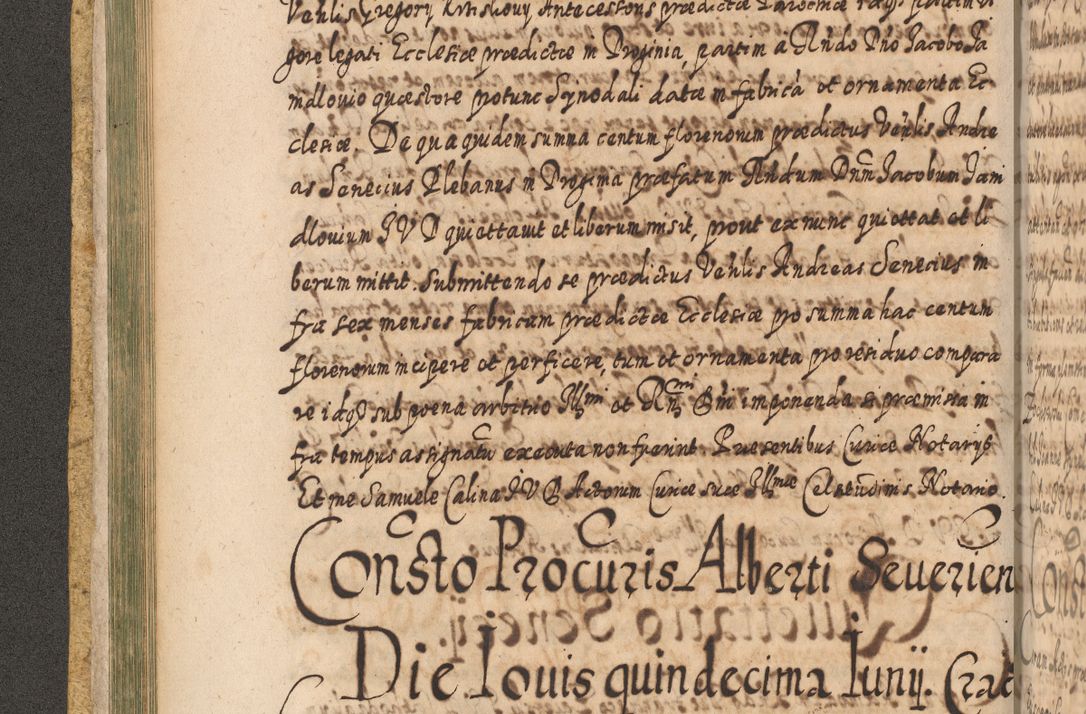 Vehlis Gregory Krnskouy Antecessoris prædictæ Parochiæ
gore legati Ecclesiæ prædictæ in Proginia, partim a Rndo Dno Jacobo Ja
mdlouio quæstore protunc Synodali datæ in fabricã et ornamenta Ec
clesiæ. De qua quidem summa centum florenorum prædictus Vehlis Andre
as Senecius Plebanus in Progima præfatum Rndum Dnm Jacobum Jam
dlouium JVD quiettauit et liberum misit, prout ex nunc quiettat et li
berum mittit. Submittendo se prædictus Vehlis Andreas Senecius in
fra sex menses fabricam prædictæ Ecclesiæ pro summa hac centum
florenorum incipere et perficere, tum et ornamenta pro residuo compara
re idq; sub poena arbitrio Illmi et Rmi Sui imponenda si præmissa in
fra tempus assignatũ executa non fuerint. Præsentibus Curiæ Notarijs
Et me Samuele Calina JVD Actorum Curiæ suæ Illmæ Celsitudinis Notario.
Consto Procuris Alberti Seuerien
Die Iouis quindecima Iunij. Crac